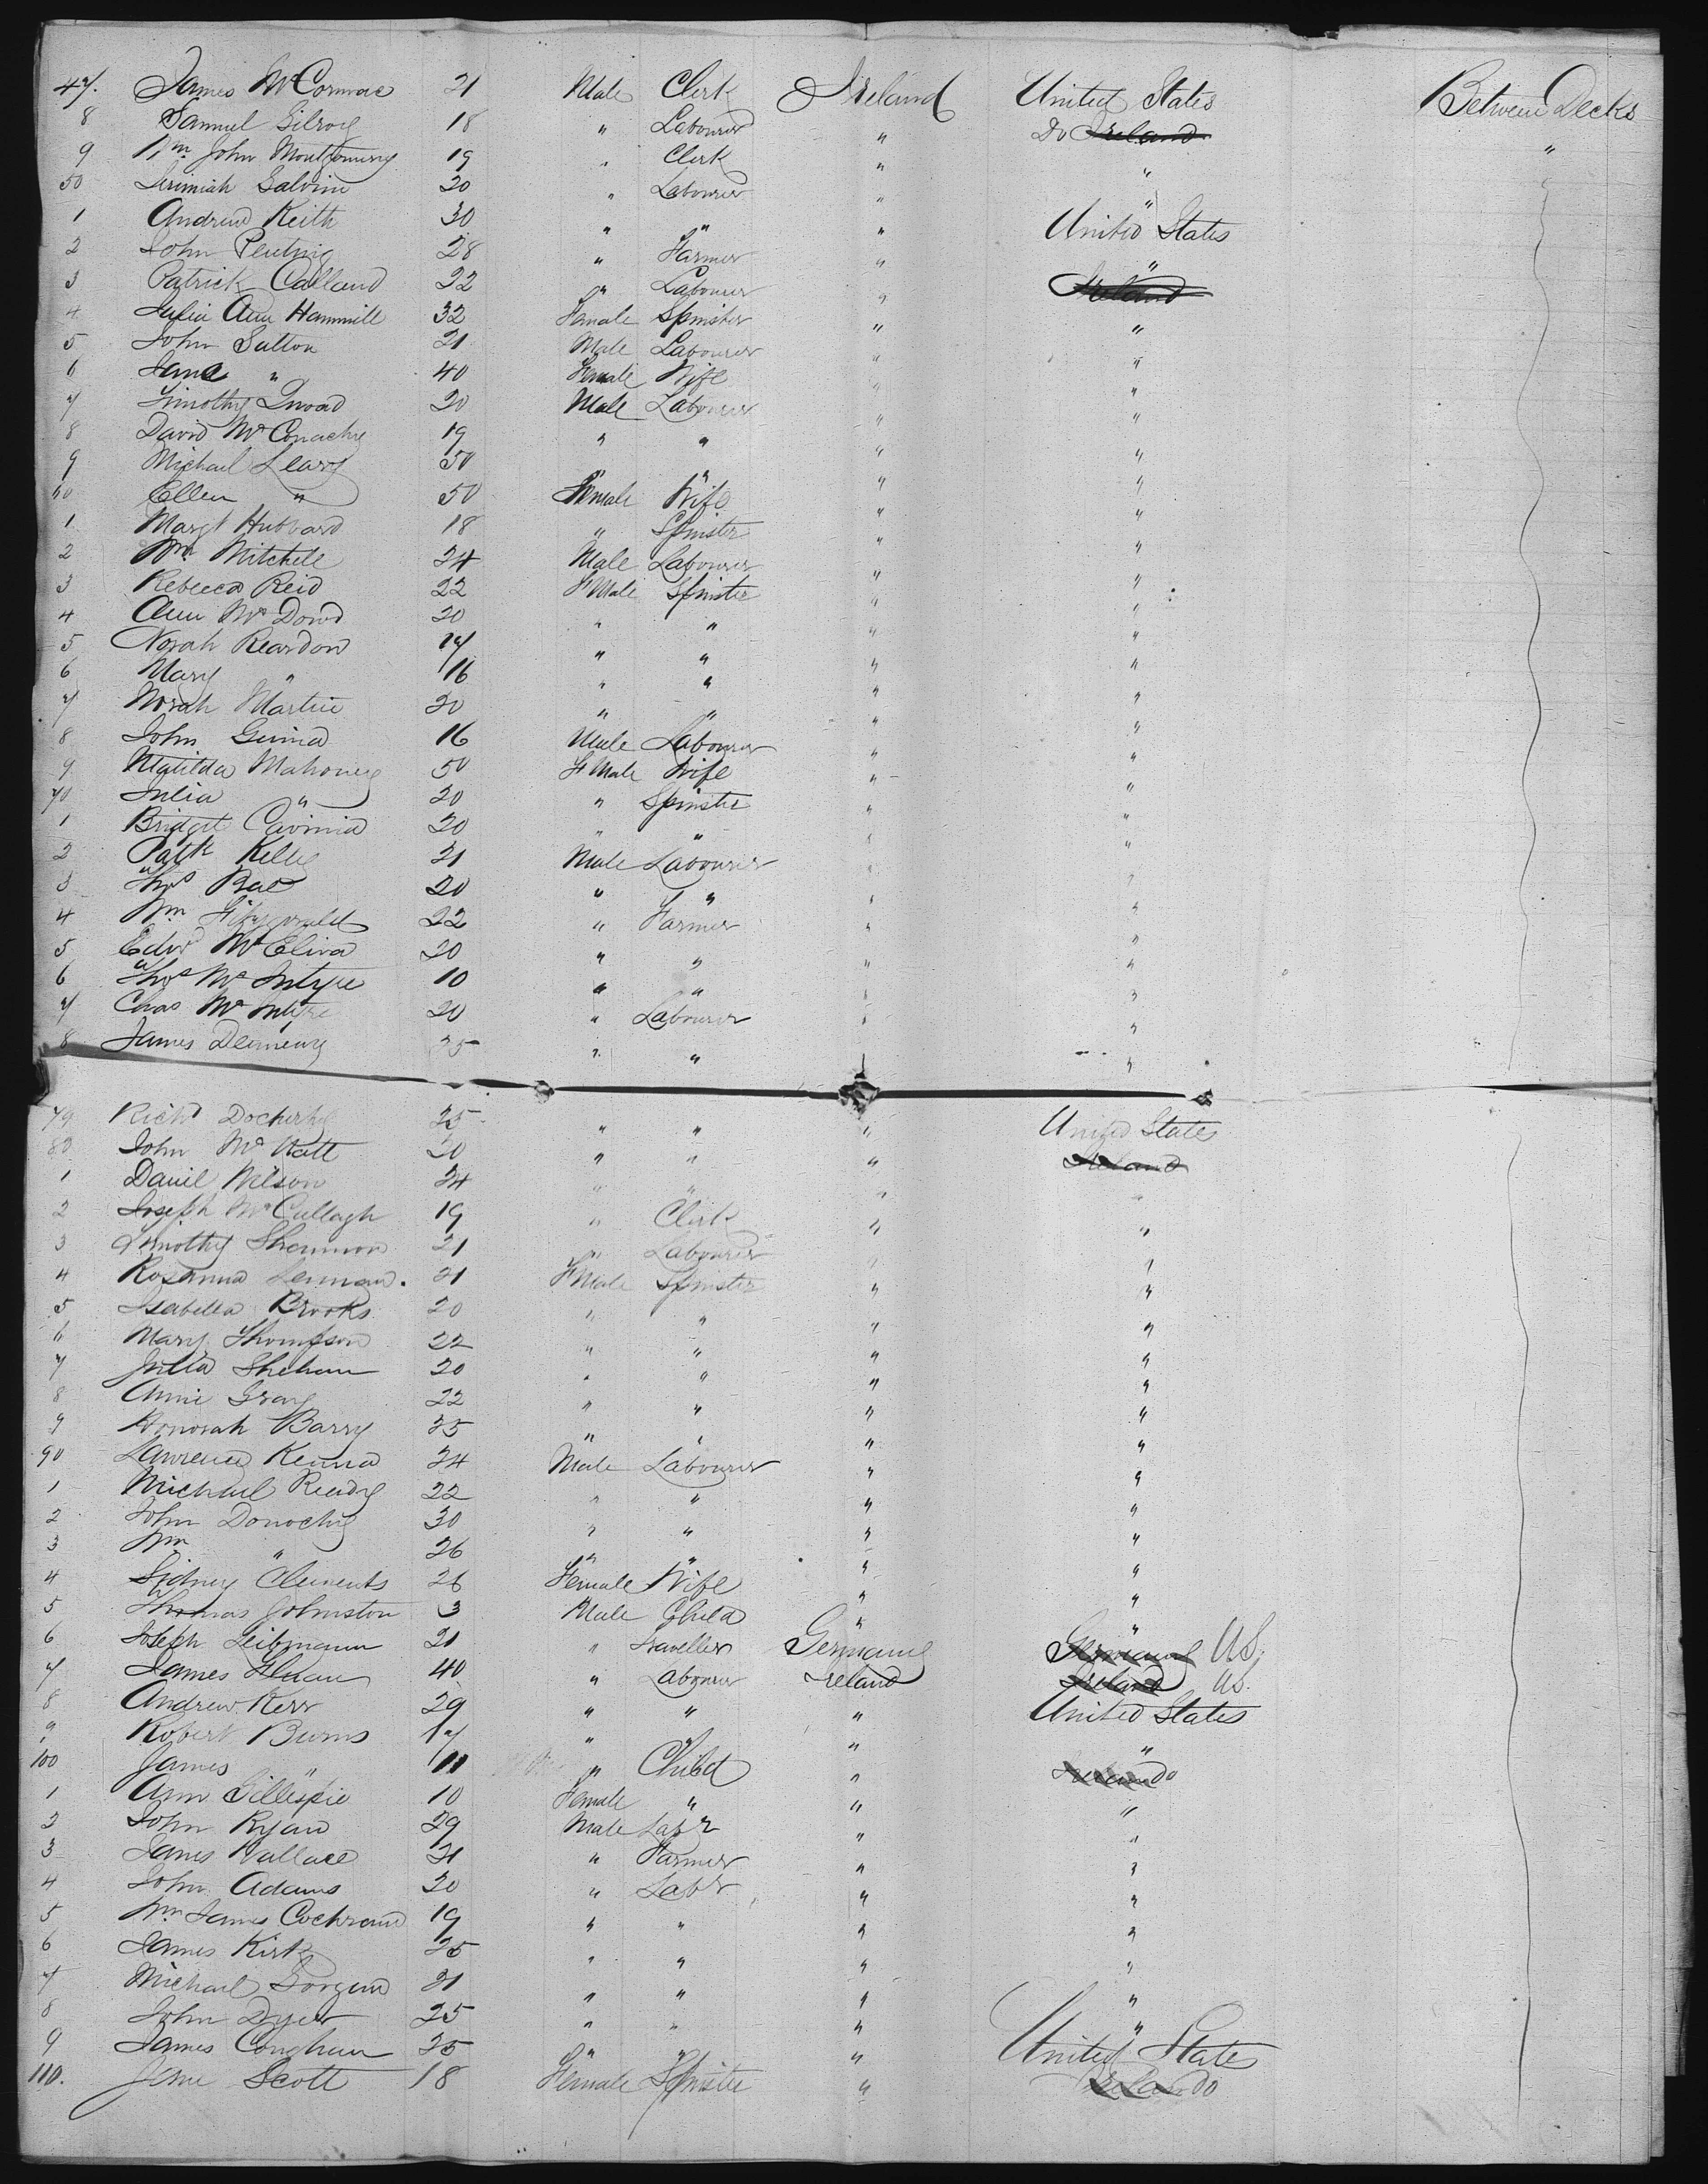 47. James McCormac 21 Male Clerk Ireland United States Between Decks
8 Samuel Gilroy 18 " Labourer " Do Ireland
9 Wm John Montgomery 19 " Clerk " " "
50 Jeremiah Galvin 20 " Labourer " "
1 Andrew Keith 30 " " " United States
2 John 28 " Farmer " "
3 Patrick Calland 22 " Labourer " Ireland
4 Julia Ann Hammill 32 Female Spinster " "
5 John Sutton 21 Male Labourer " "
6 Jane " 40 Female Wife " "
7 Timothy 20 Male Labourer " "
8 David McConachy 19 " " " "
9 Michael Leary 50 " " " "
60 Ellen " 50 Female Wife " "
1 Margt Hubbard 18 " Spinster " "
2 Wm Mitchell 24 Male Labourer " "
3 Rebecca Reid 22 FMale Spinster " "
4 Ann McDowd 20 " " " "
5 Norah Reardon 17 " " " "
6 Mary " 16 " " " "
7 Norah Martin 20 " " " "
8 John 16 Male Labourer " "
9 Matilda Mahoney 50 FMale Wife " "
70 Julia " 20 " Spinster " "
1 Bridget 20 " " " "
2 Patk Kelly 21 Male Labourer " "
3 Thos Rae 20 " " " "
4 Wm Fitzgerald 22 " Farmer " "
5 Edwd 20 " " " "
6 Thos McIntyre 10 " " " "
7 Chas McIntyre 20 " Labourer " "
8 James 35 " " "
79 Richd Docherty 25 " " " United States
80 John McWatt 20 " " " Ireland
1 Daniel Wilson 24 " " " "
2 Joseph McCullagh 19 " Clerk " "
3 Timothy Shannon 21 " Labourer " "
4 Rosanna 21 FMale Spinster " "
5 Isabella Brooks 20 " " " "
6 Mary Thompson 22 " " " "
7 Julia Shehan 20 " " " "
8 Annie Gray 22 " " " "
9 Honorah Barry 25 " " " "
90 Lawrence Kenna 24 Male Labourer " "
1 Michael Ready 22 " " " "
2 John Donochy 30 " " " "
3 Wm " 26 " " " "
4 Sidney Clements 26 Female Wife " "
5 Thomas Johnston 3 Male Child " "
6 Joseph Leibmann 21 " Traveller Germany Germany US.
7 James 40 " Labourer Ireland Ireland US.
8 Andrew Kerr 29 " " " United States
9 Robert Burns 17 " " " "
100 James " 11 " Child " Ireland Do
1 Ann Gillespie 10 Female " " "
2 John Ryan 29 Male Labr " "
3 James Wallace 21 " Farmer " "
4 John Adams 20 " Labr " "
5 Wm James Cochrane 19 " " " "
6 James Kirk 25 " " " "
7 Michael 21 " " " "
8 John Dyer 25 " " " "
9 James Conghan 25 " " " United States
110. Jane Scott 18 Female Spinster " Ireland Do